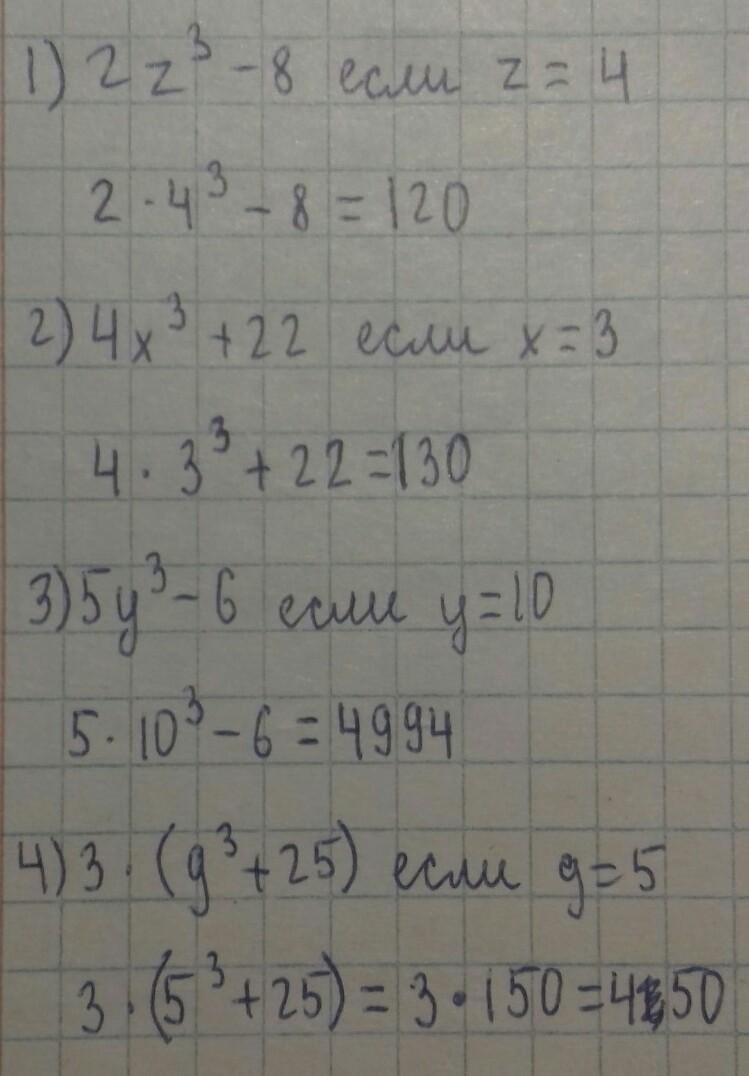 1) 2z³ - 8 если z = 4
2 · 4³ - 8 = 120
2) 4x³ + 22 если x = 3
4 · 3³ + 22 = 130
3) 5y³ - 6 если y = 10
5 · 10³ - 6 = 4994
4) 3 · (g³ + 25) если g = 5
3 · (5³ + 25) = 3 · 150 = 450